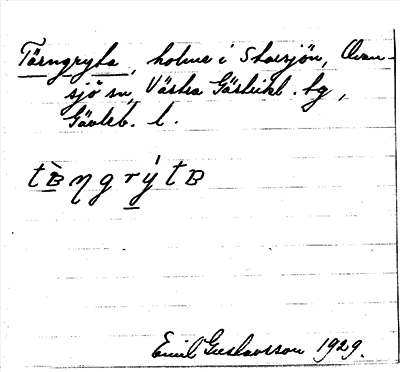 Tärngryta, holme i Storsjön, Ovan-
sjö sn, Västra Gästrikl. tg,
Gävleb. l.
tᴃ̀ŋgrýtᴃ
Emil Gustavsson 1929.